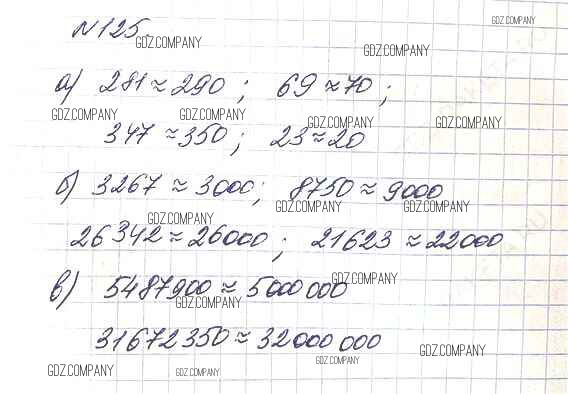 N125.
GDZ.COMPANY
GDZ.COMPANY
GDZ.COMPANY
а) 281≈290; 69≈70;
GDZ.COMPANY
GDZ.COMPANY
GDZ.COMPANY
GDZ.COMPANY
347≈350; 23≈20
б) 3267≈3000; 8750≈9000
GDZ.COMPANY
GDZ.COMPANY
GDZ.COMPANY
26342≈26000; 21623≈22000
GDZ.COMPANY
в) 5487900≈5000000
GDZ.COMPANY
31672350≈32000000
GDZ.COMPANY
GDZ.COMPANY
GDZ.COMPANY
GDZ.COMPANY